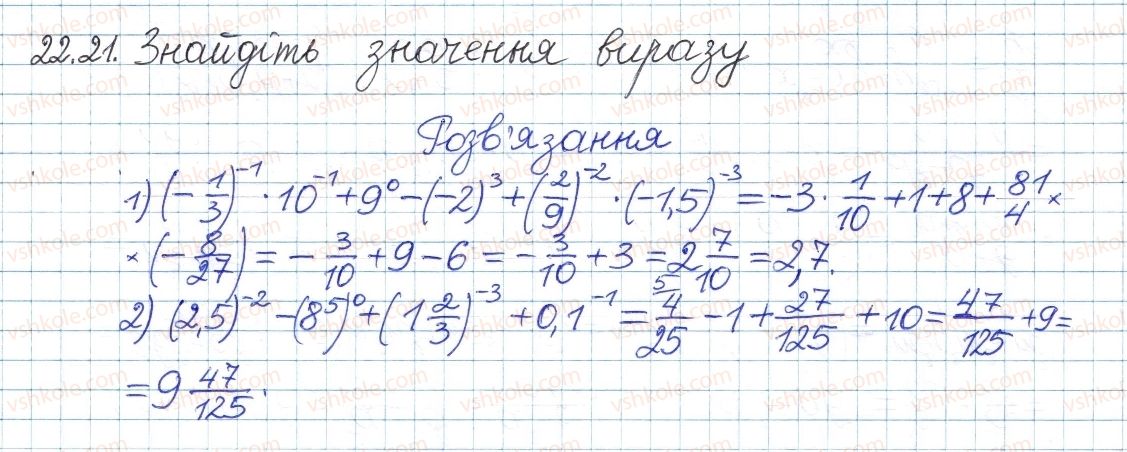 22.21. Знайдіть значення виразу
Розв'язання
1) (-1/3)^-1 · 10^-1 + 9^0 - (-2)^3 + (2/9)^-2 · (-1,5)^-3 = -3 · 1/10 + 1 + 8 + 81/4 ×
× (-8/27) = -3/10 + 9 - 6 = -3/10 + 3 = 2 7/10 = 2,7.
2) (2,5)^-2 - (8^5)^0 + (1 2/3)^-3 + 0,1^-1 = 5/ 4/25 - 1 + 27/125 + 10 = 47/125 + 9 =
= 9 47/125.